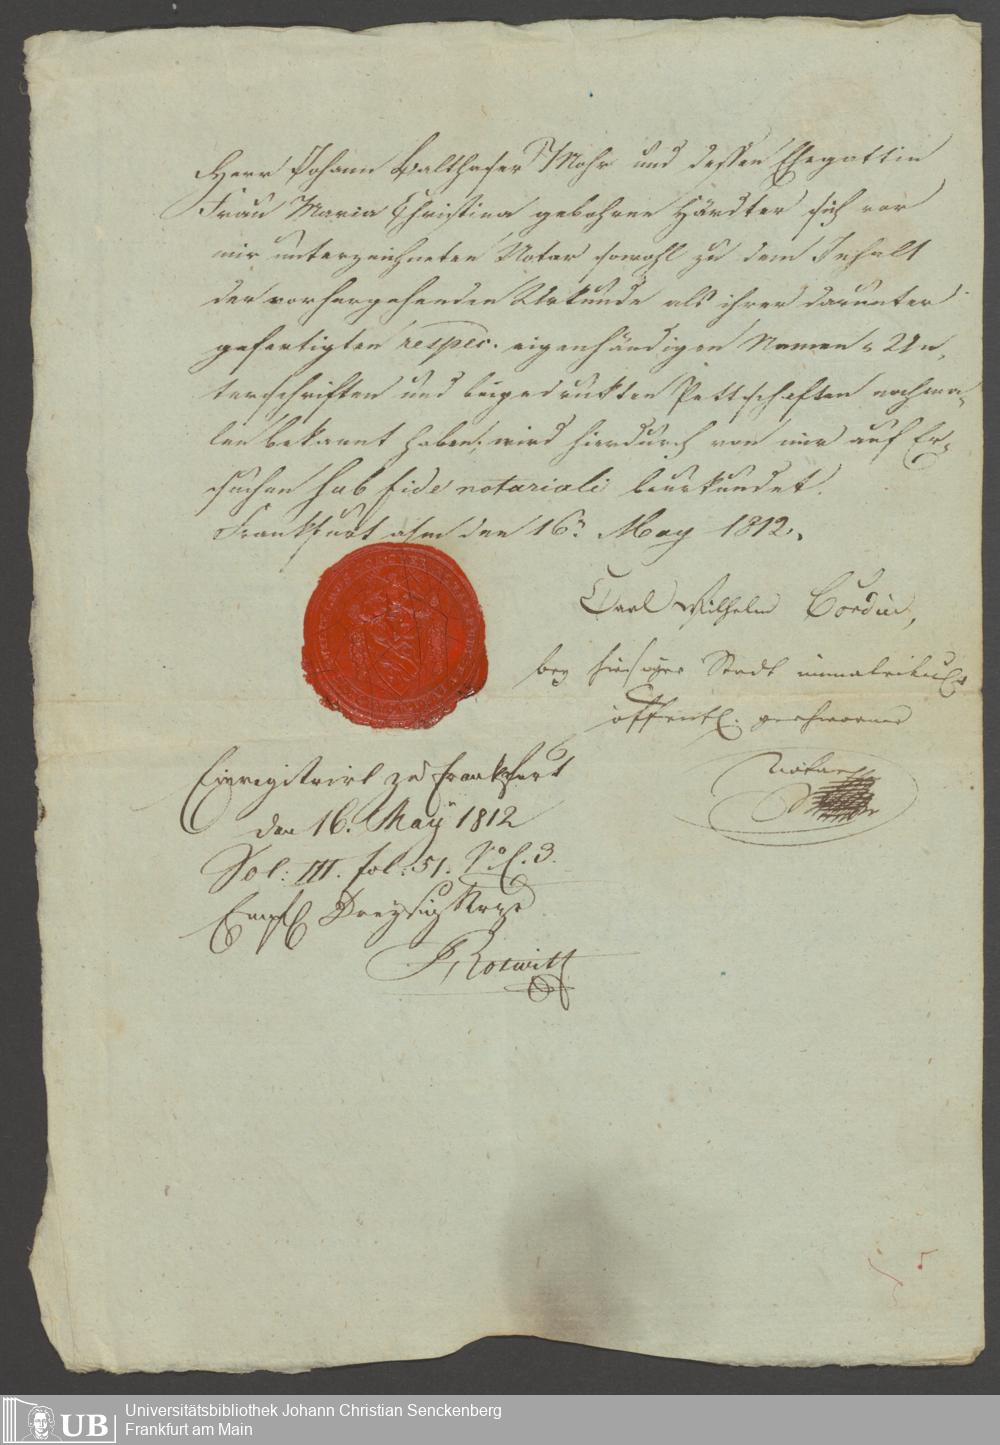 Herr Johann Balthaser Mohr und dessen Ehegattin
Frau Maria Christina gebohrne Härdter sich vor
mir unterzeichneten Notar sowohl zu dem Inhalt
der vorhergehenden Urkunde als ihrer darunter
gefertigten respec. eigenhändigen Namen = Un,
terschriften und beigedrukten Pettschaften nochma,
len bekannt haben, wird hierdurch von mir auf Er,
suchen sub fide notariali beurkundet.
Frankfurt a/m den 16n May 1812.
Carl Wilhelm
bey hiesiger Stadt immatrikul
öffentl. geschworner
Notar
Einregistrirt zu Frankfurt
den 16. May 1812
Vol: III. fol: 51. 3.
Empf Dreysig